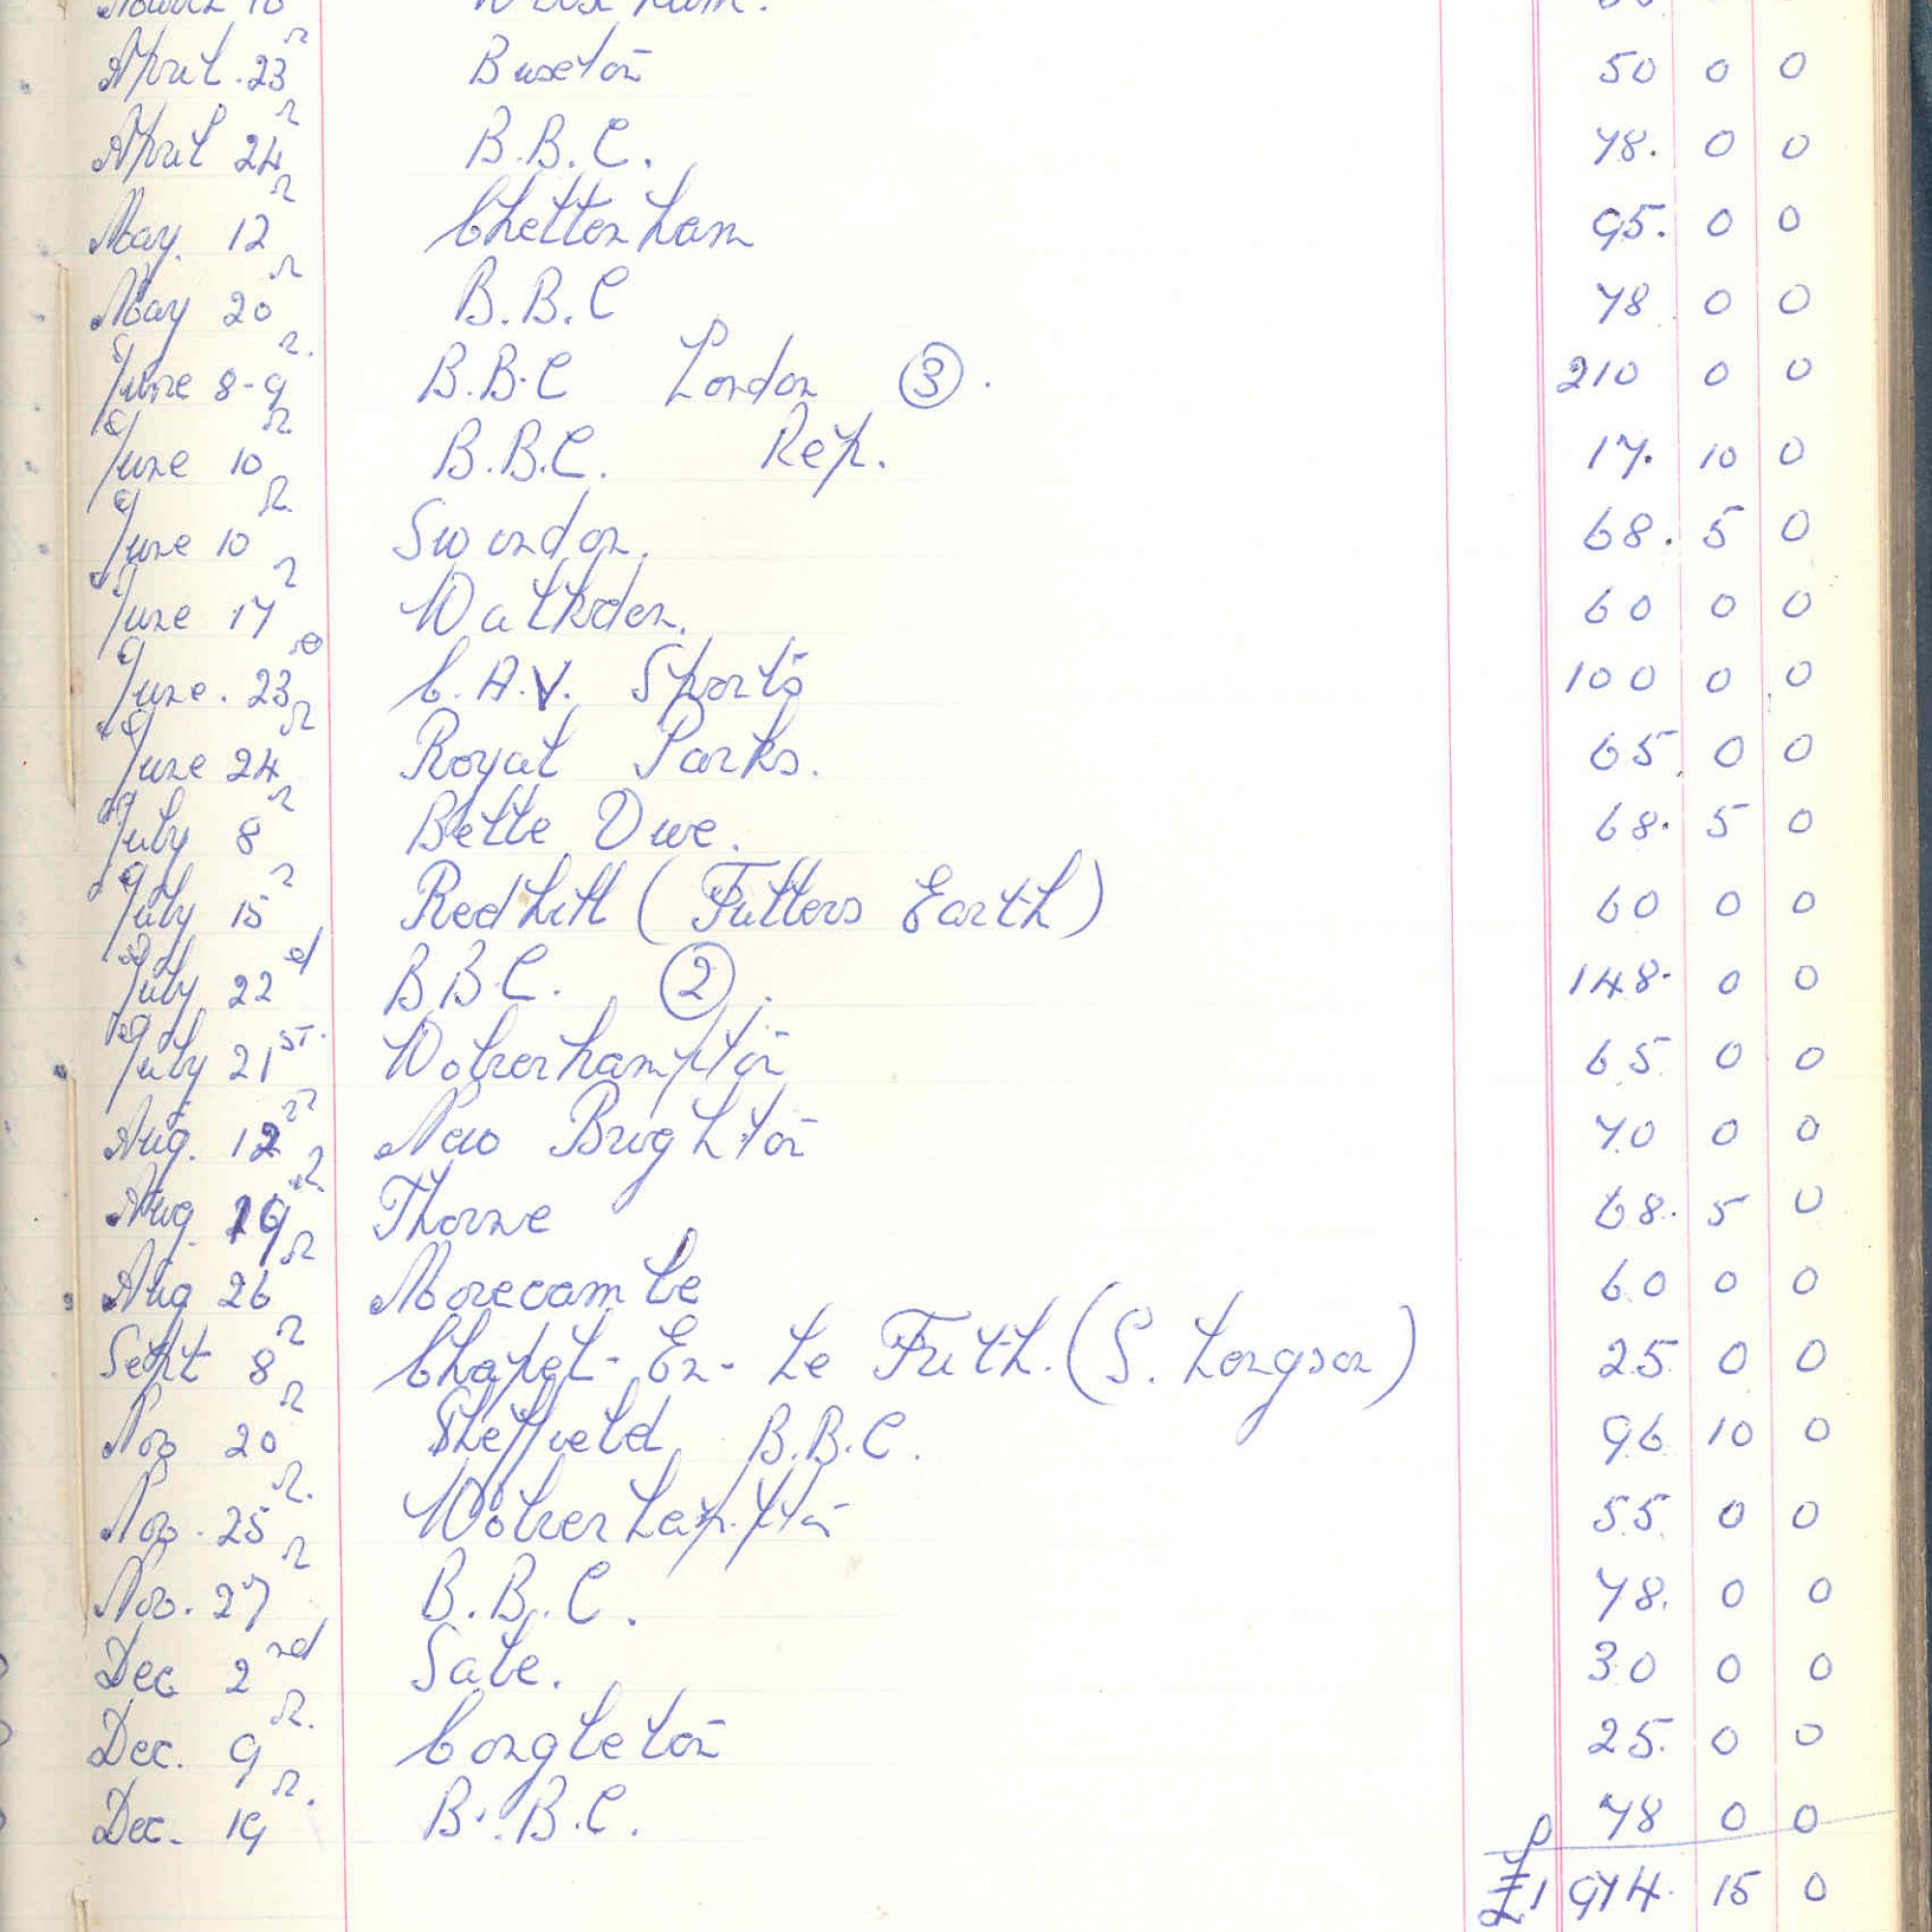 March 18
April. 23ʳᵈ Buxton 50 0 0
April 24ᵗʰ B.B.C. 78. 0 0
May. 12ᵗʰ Cheltenham 95. 0 0
May 20ᵗʰ B.B.C 78 0 0
June 8-9ᵗʰ. B.B.C London ③. 210 0 0
June 10ᵗʰ B.B.C. Rep. 17. 10 0
June 10ᵗʰ Swindon. 68. 5 0
June 17ᵗʰ Walkden. 60 0 0
June. 23ʳᵈ C.A.V. Sports 100 0 0
June 24ᵗʰ Royal Parks. 65. 0 0
July 8ᵗʰ Belle Vue. 68. 5 0
July 15ᵗʰ Redhill (Fullers Earth) 60 0 0
July 22ⁿᵈ B.B.C. ②. 148. 0 0
July 21ˢᵀ. Wolverhampton 65. 0 0
Aug. 12ᵗʰ New Brighton 70 0 0
Aug. 19ᵗʰ Thorne 68. 5 0
Aug 26ᵗʰ Morecambe 60 0 0
Sept 8ᵗʰ Chapel-En-Le Frith. (S. Longson) 25. 0 0
Nov 20ᵗʰ Sheffield B.B.C. 96 10 0
Nov. 25ᵗʰ. Wolverhap.ton 55. 0 0
Nov. 27ᵗʰ B.B.C. 78. 0 0
Dec 2ⁿᵈ Sale. 30 0 0
Dec. 9ᵗʰ. Congleton 25. 0 0
Dec. 19ᵗʰ. B.B.C. 78 0 0
£1 974. 15 0